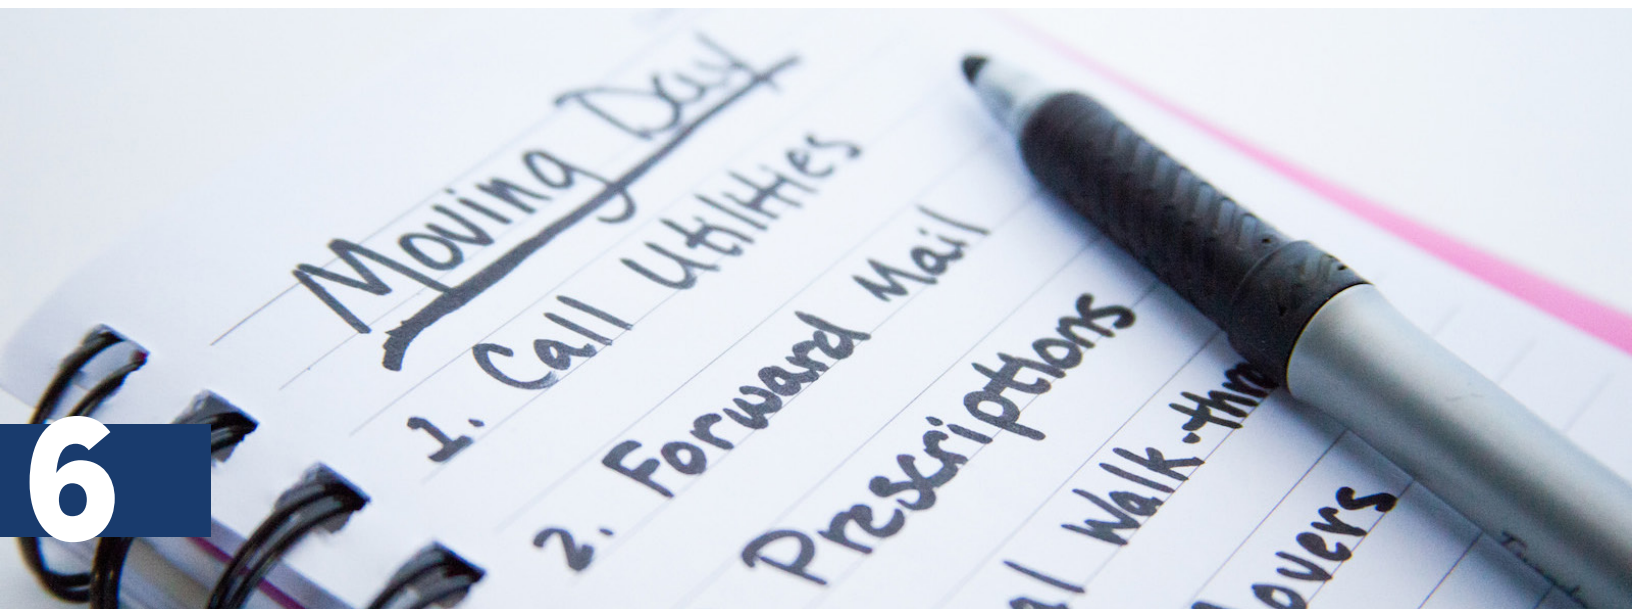 Moving Day
1. Call Utilities
2. Forward Mail
Prescriptions
Walk-thro
overs
6